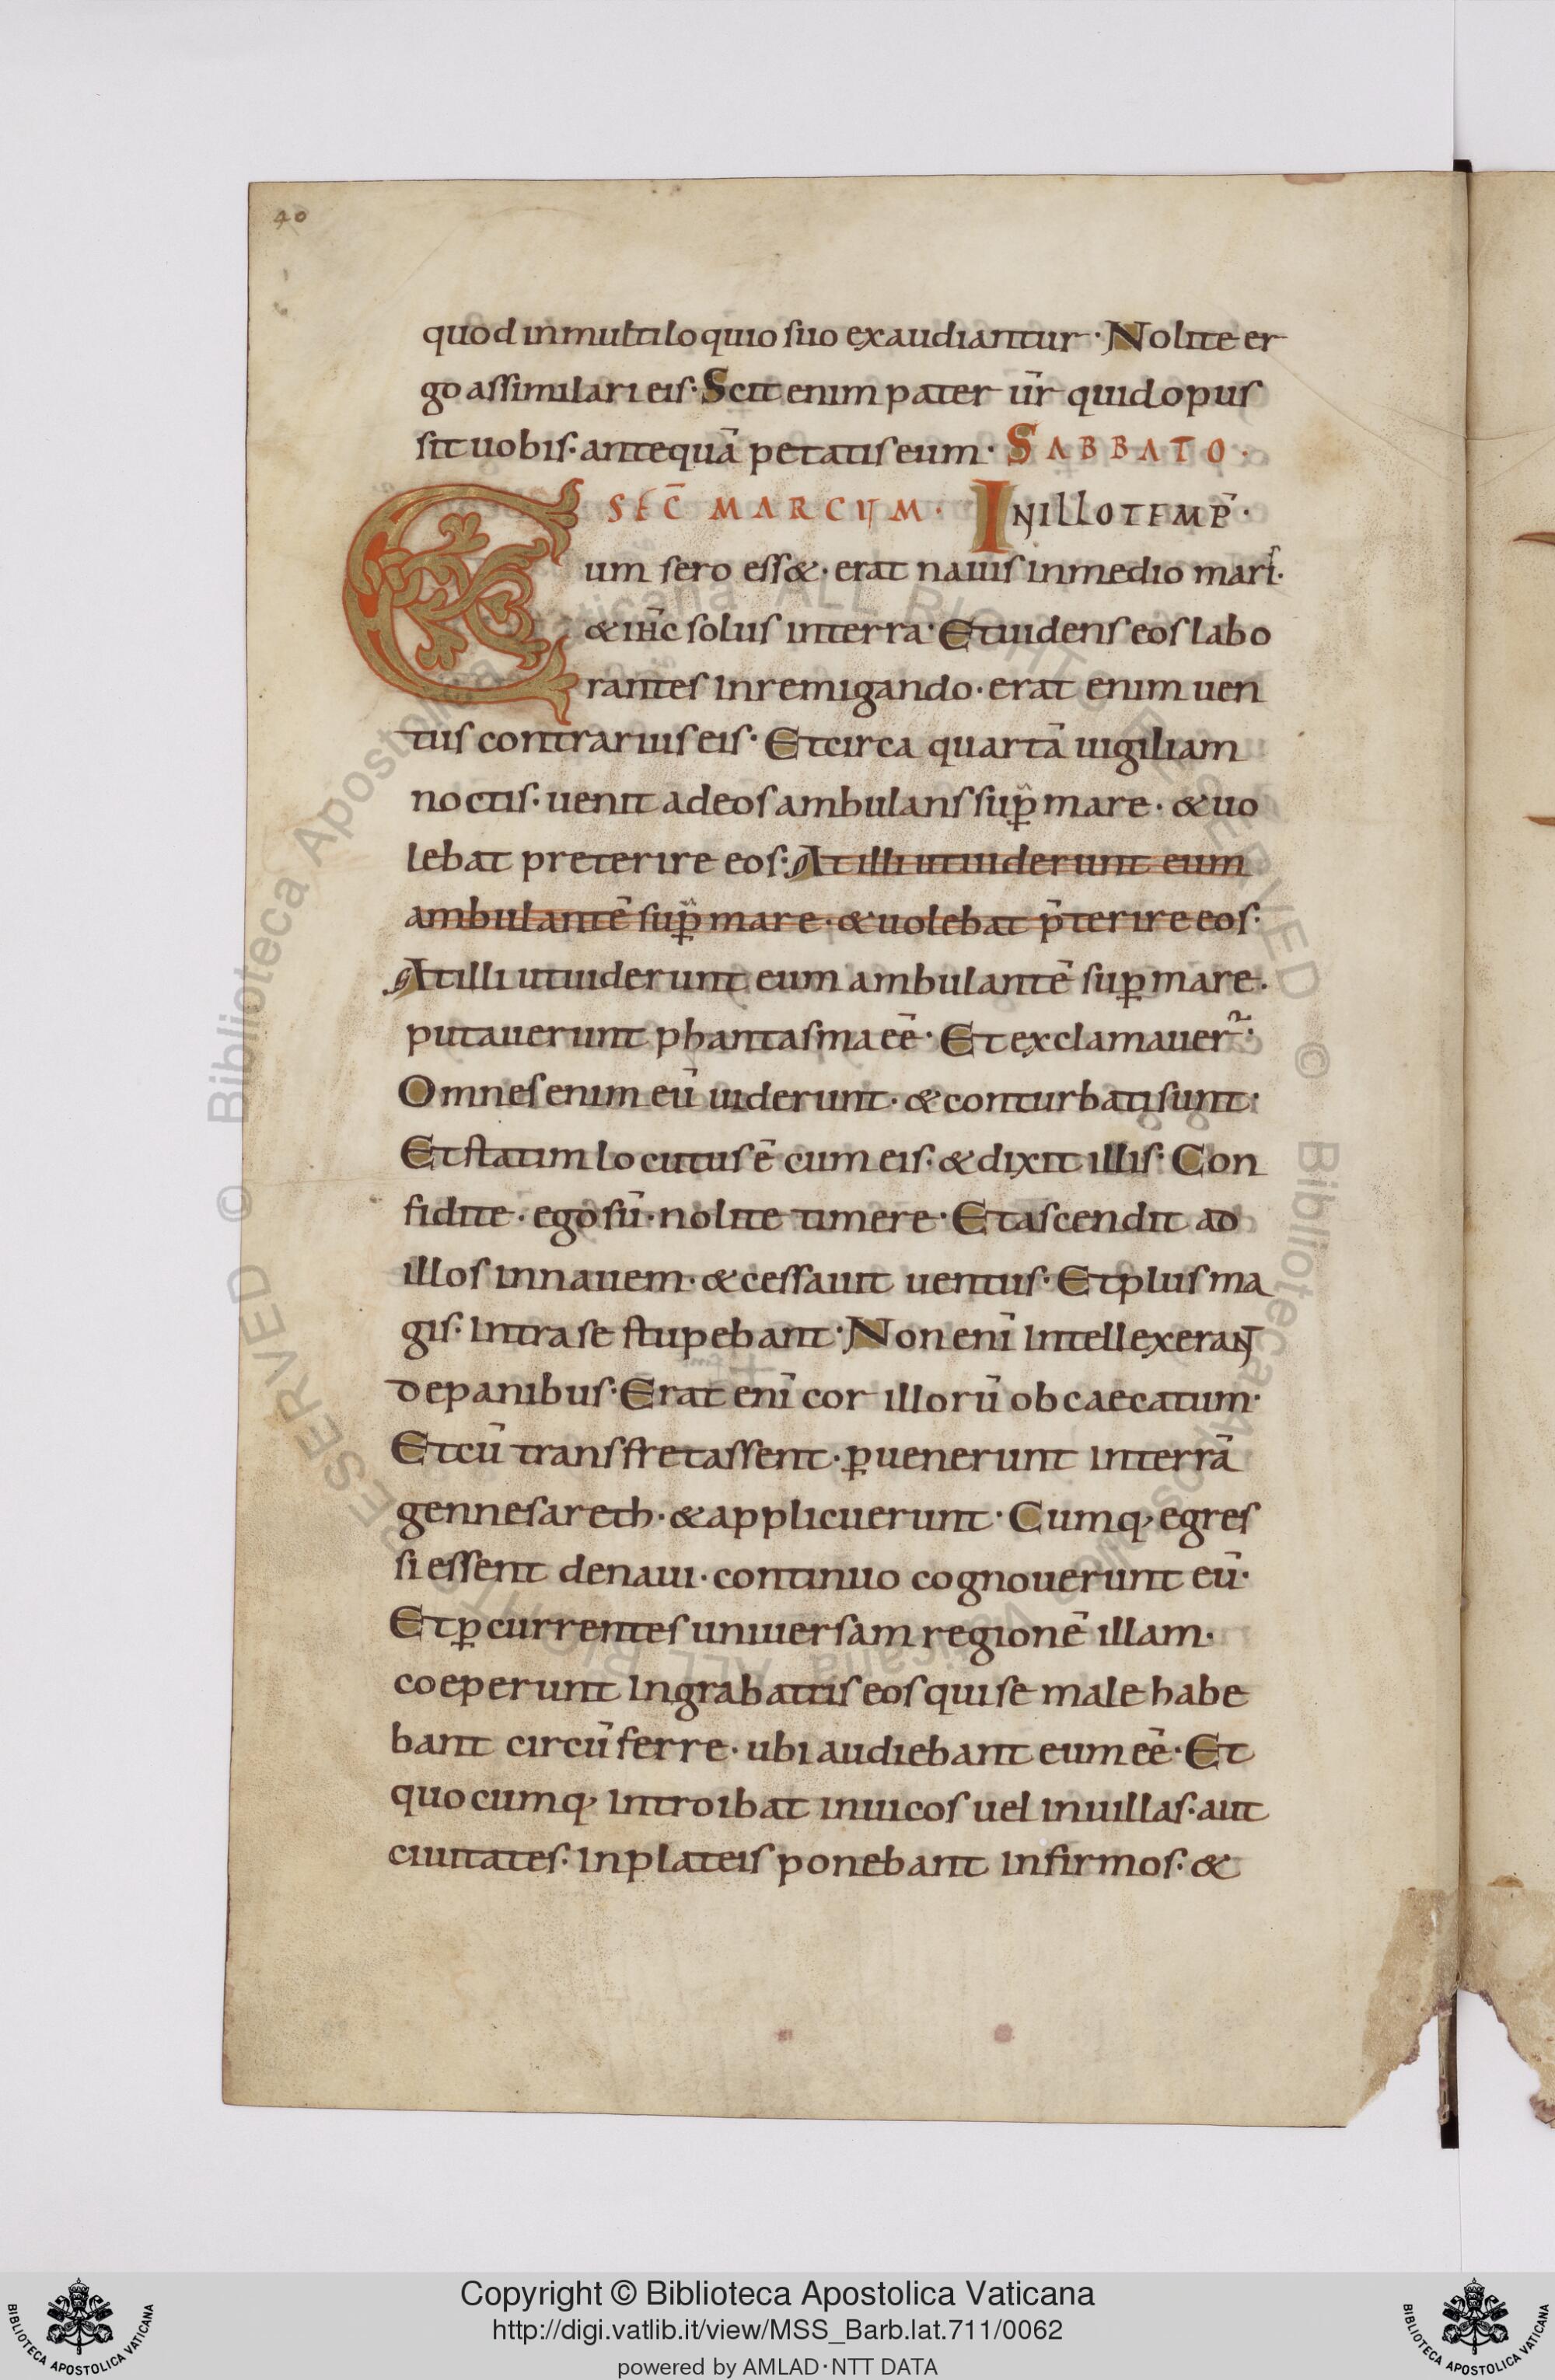 40
quod in multiloquio suo exaudiantur · Nolite er
go assimilari eis · Scit enim pater ur̄ quid opus
sit uobis · antequā petatis eum · SABBATO ·
SEC̄ MARCUM · IN ILLO TEMP̄ ·
Cum sero ess& · erat nauis in medio maris ·
& ih̄c solus in terra · Et uidens eos labo
rantes in remigando · erat enim uen
tus contrarius eis · Et circa quartā uigiliam
noctis · uenit ad eos ambulans sup̄ mare · & uo
lebat preterire eos : At illi ut uiderunt eum
ambulantē sup̄ mare · & uolebat p̄terire eos ·
At illi ut uiderunt eum ambulantē suꝑ mare ·
putauerunt phantasma eē · Et exclamauer̃ ·
Omnes enim eū uiderunt · & conturbati sunt ·
Et statim locutus ē cum eis · & dixit illis : Con
fidite · ego sū · nolite timere · Et ascendit ad
illos in nauem · & cessauit uentus · Et plus ma
gis · Intra se stupebant · Non eni̅ Intellexerant
de panibus · Erat eni̅ cor illorū obcaecatum ·
Et cū transfretassent · ꝑuenerunt in terrā
gennesareth · & applicuerunt · Cumq; egres
si essent de naui · continuo cognouerunt eū ·
Et ꝑcurrentes uniuersam regionē illam ·
coeperunt In grabattis eos qui se male habe
bant circūferre · ubi audiebant eum eē · Et
quocumq; Introibat in uicos uel in uillas · aut
ciuitates · In plateis ponebant Infirmos · &
© Biblioteca Apostolica Vaticana ALL RIGHTS RESERVED © Biblioteca Apostolica Vaticana ALL RIGHTS RESERVED
Copyright © Biblioteca Apostolica Vaticana
http://digi.vatlib.it/view/MSS_Barb.lat.711/0062
powered by AMLAD·NTT DATA
BIBLIOTECA APOSTOLICA VATICANA
BIBLIOTECA APOSTOLICA VATICANA